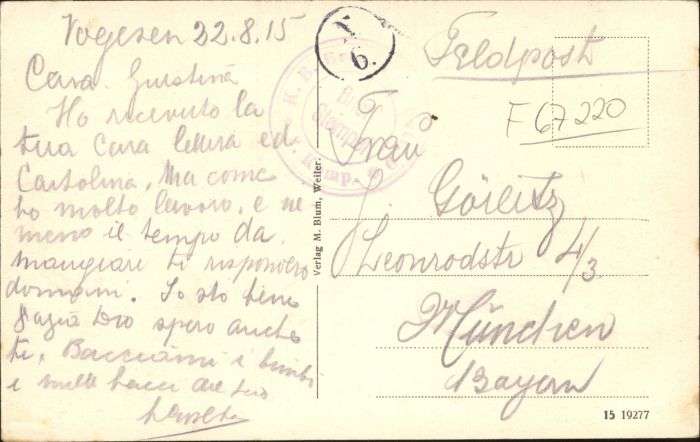 Vogesen 22.8.15
Cara Giustina
Ho ricevuto la
tua cara lettera ed
Cartolina. Ma come
ho molto lavoro, e ne
meno il tempo da
mangiare ti risponderò
domani. Io sto bene
Dio spero anche
te. Bacciami i bimbi
e mille bacci dal tuo
Feldpost
F 67220
Frau
Görlitz
Leonrodstr 4/3
München
Bayern
Verlag M. Blum, Weiler.
15 19277